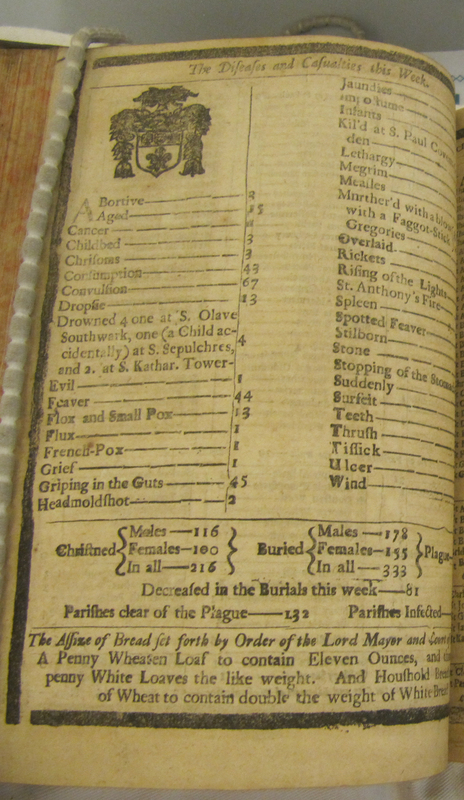 The Diseases and Casualties this Week.
ABortive 3
Aged 15
Cancer
Childbed 3
Chrisoms 3
Consumption 43
Convulsion 67
Dropsie 13
Drowned 4 one at S. Olave
Southwark, one (a Child ac-
cidentally) at S. Sepulchres, 4
and 2. at S. Kathar. Tower-
Evil 1
Feaver 44
Flox and Small Pox 13
Flux 1
French-Pox 1
Grief 1
Griping in the Guts 45
Headmoldshot 2
Jaundies
Impostume
Infants
Kil'd at S. Paul
den
Lethargy
Megrim
Meailes
Murther'd with a
with a Faggot-Stick
Gregories
Overlaid
Rickets
Rising of the Lights
St. Anthony's Fire
Spleen
Spotted Feaver
Stilborn
Stone
Stopping of the
Suddenly
Surfeit
Teeth
Thrush
Tissick
Ulcer
Wind
Christned Males 116 Females 100 In all 216 Buried Males 178 Females 155 In all 333 Plague
Decreased in the Burials this week 81
Parishes clear of the Plague 132 Parishes Infected
The Assize of Bread set forth by Order of the Lord Mayor and
A Penny Wheaten Loaf to contain Eleven Ounces, and
penny White Loaves the like weight. And Houshold
of Wheat to contain double the weight of White